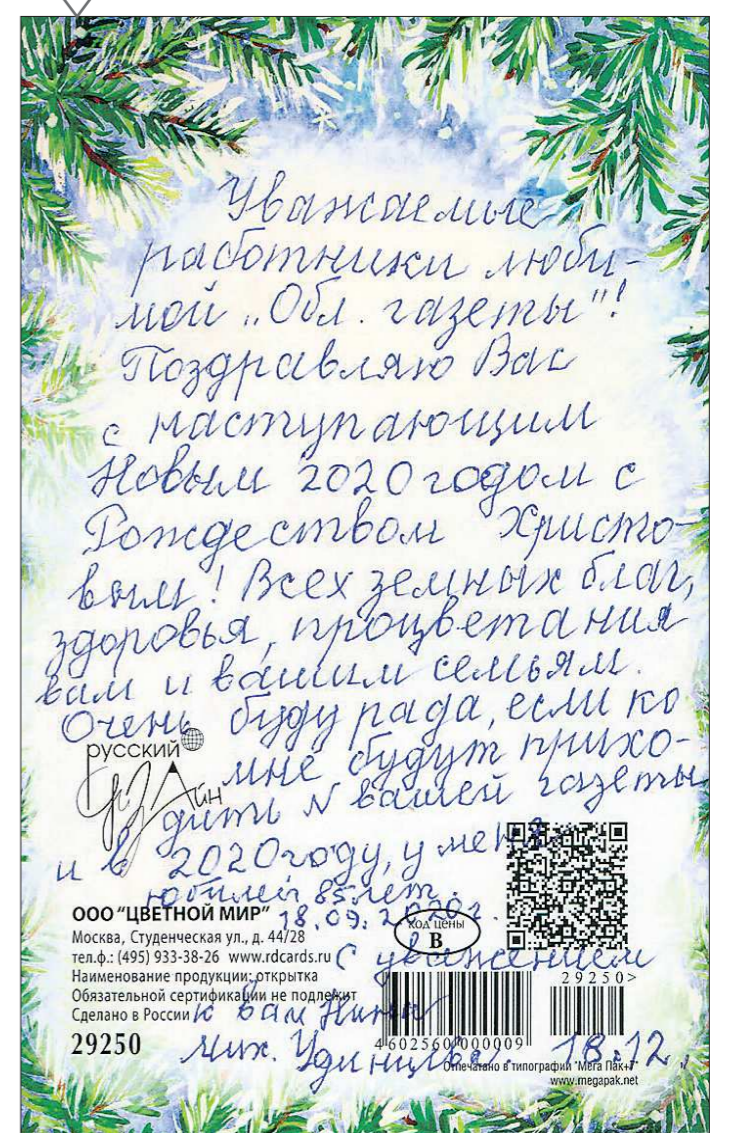 Уважаемые
работники люби-
мой „Обл. газеты"!
Поздравляю Вас
с наступающим
Новым 2020 годом с
Рождеством Христо-
вым! Всех земных благ,
здоровья, процветания
вам и вашим семьям.
Очень буду рада, если ко
мне будут прихо-
дить N вашей газеты
и в 2020 году, у меня
юбилей 85 лет.
18.09.2020г.
С уважением
к Вам Нина
Мих. Удинцева. 18.12.
русский
дизАйн
ООО "ЦВЕТНОЙ МИР"
Москва, Студенческая ул., д. 44/28
тел.ф.: (495) 933-38-26 www.rdcards.ru
Наименование продукции: открытка
Обязательной сертификации не подлежит
Сделано в России
29250
Код цены
В
4602560000009
29250>
Отпечатано в типографии "Мега Пак+7"
www.megapak.net